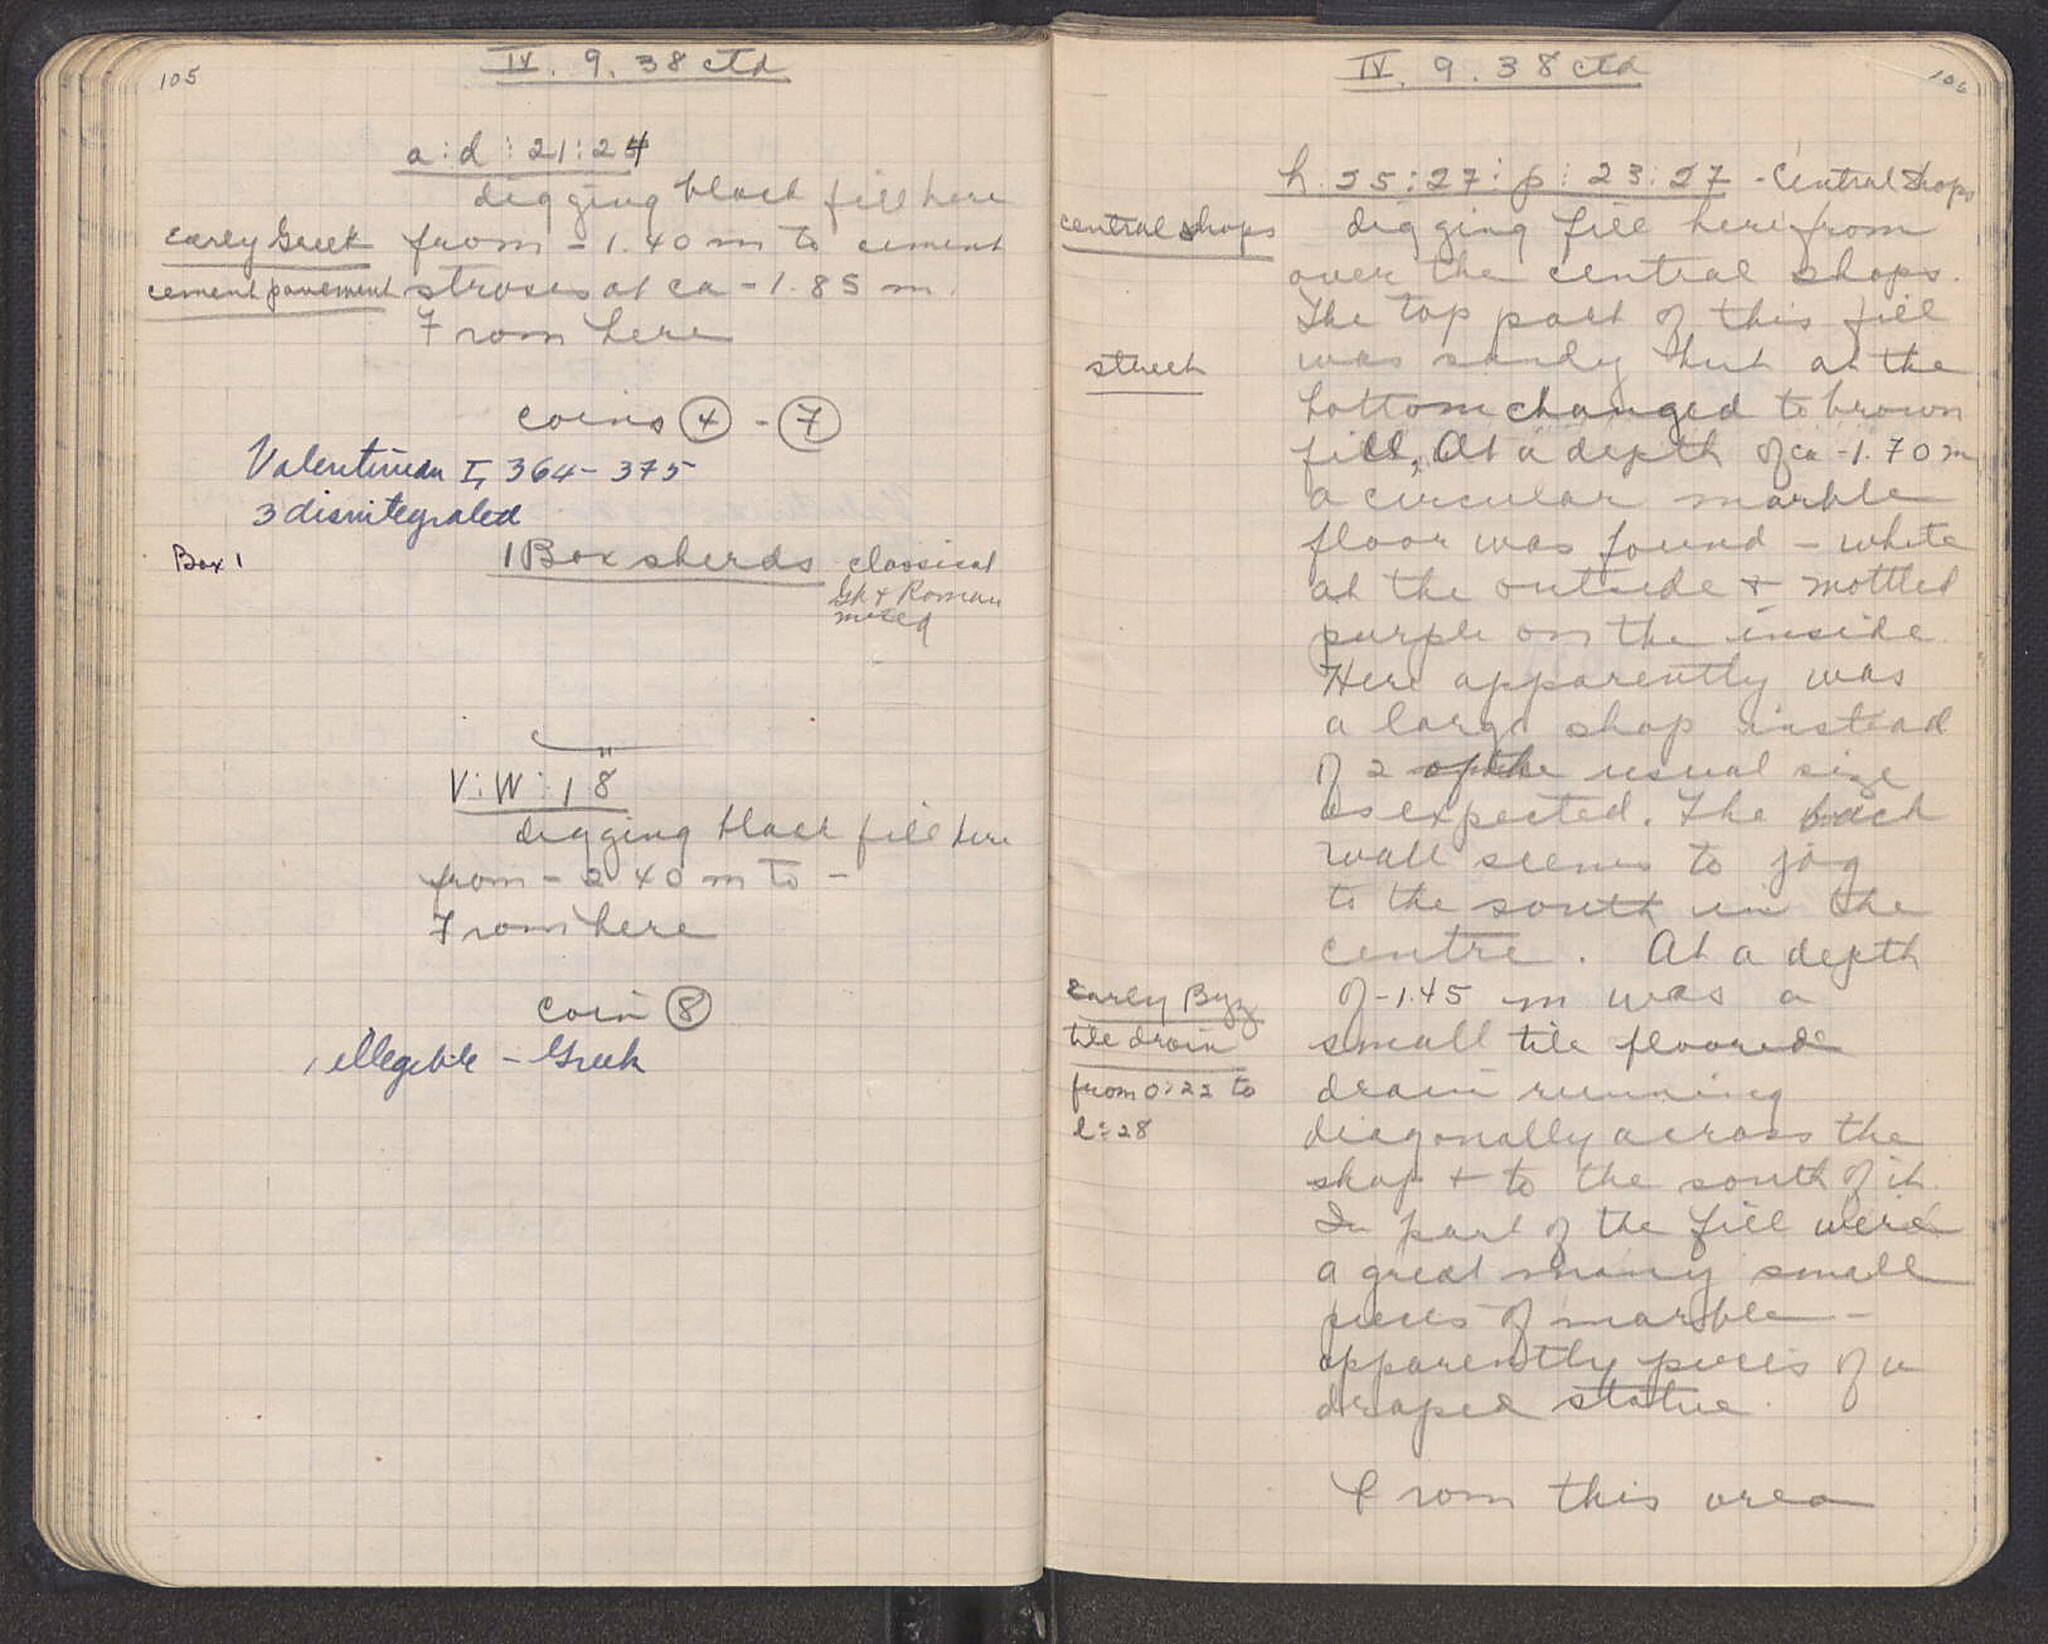 105
IV. 9. 38 ctd
a:d:21:24
digging black fill here
Early Greek
from -1.40 m to cement
cement pavement
stroses at ca -1.85 m.
From here
coins ④ - ⑦
Valentinian I, 364-375
3 disintegrated
Box 1
1 Box sherds classical
Gk + Roman
mixed
V:W:18
digging black fill here
from -2 40 m to -
From here
coin ⑧
1 illegible - Greek
IV. 9. 38 ctd
106
h. 25:27:p:23:27 - Central Shops
central shops
digging fill here from
over the central shops.
The top part of this fill
street
was sandy but at the
bottom changed to brown
fill. At a depth of ca -1.70 m
a circular marble
floor was found - white
at the outside + mottled
purple on the inside.
Here apparently was
a large shop instead
of 2 of the usual size
as expected. The back
wall seems to jog
to the south in the
centre. At a depth
Early Byz
of -1.45 m was a
tile drain
small tile floored
from o:22 to
drain running
l:28
diagonally across the
shop + to the south of it.
In part of the fill were
a great many small
pieces of marble -
apparently pieces of a
draped statue.
From this area